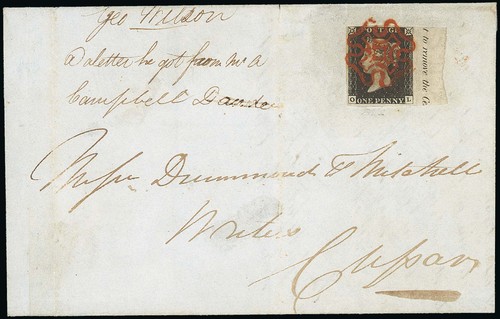 Geo Wilson
a letter he got from Mr A
Campbell Dundee
Messrs Drummond & Mitchell
Writers
Cupar
POSTAGE
O ONE PENNY L
t to remove the Ce